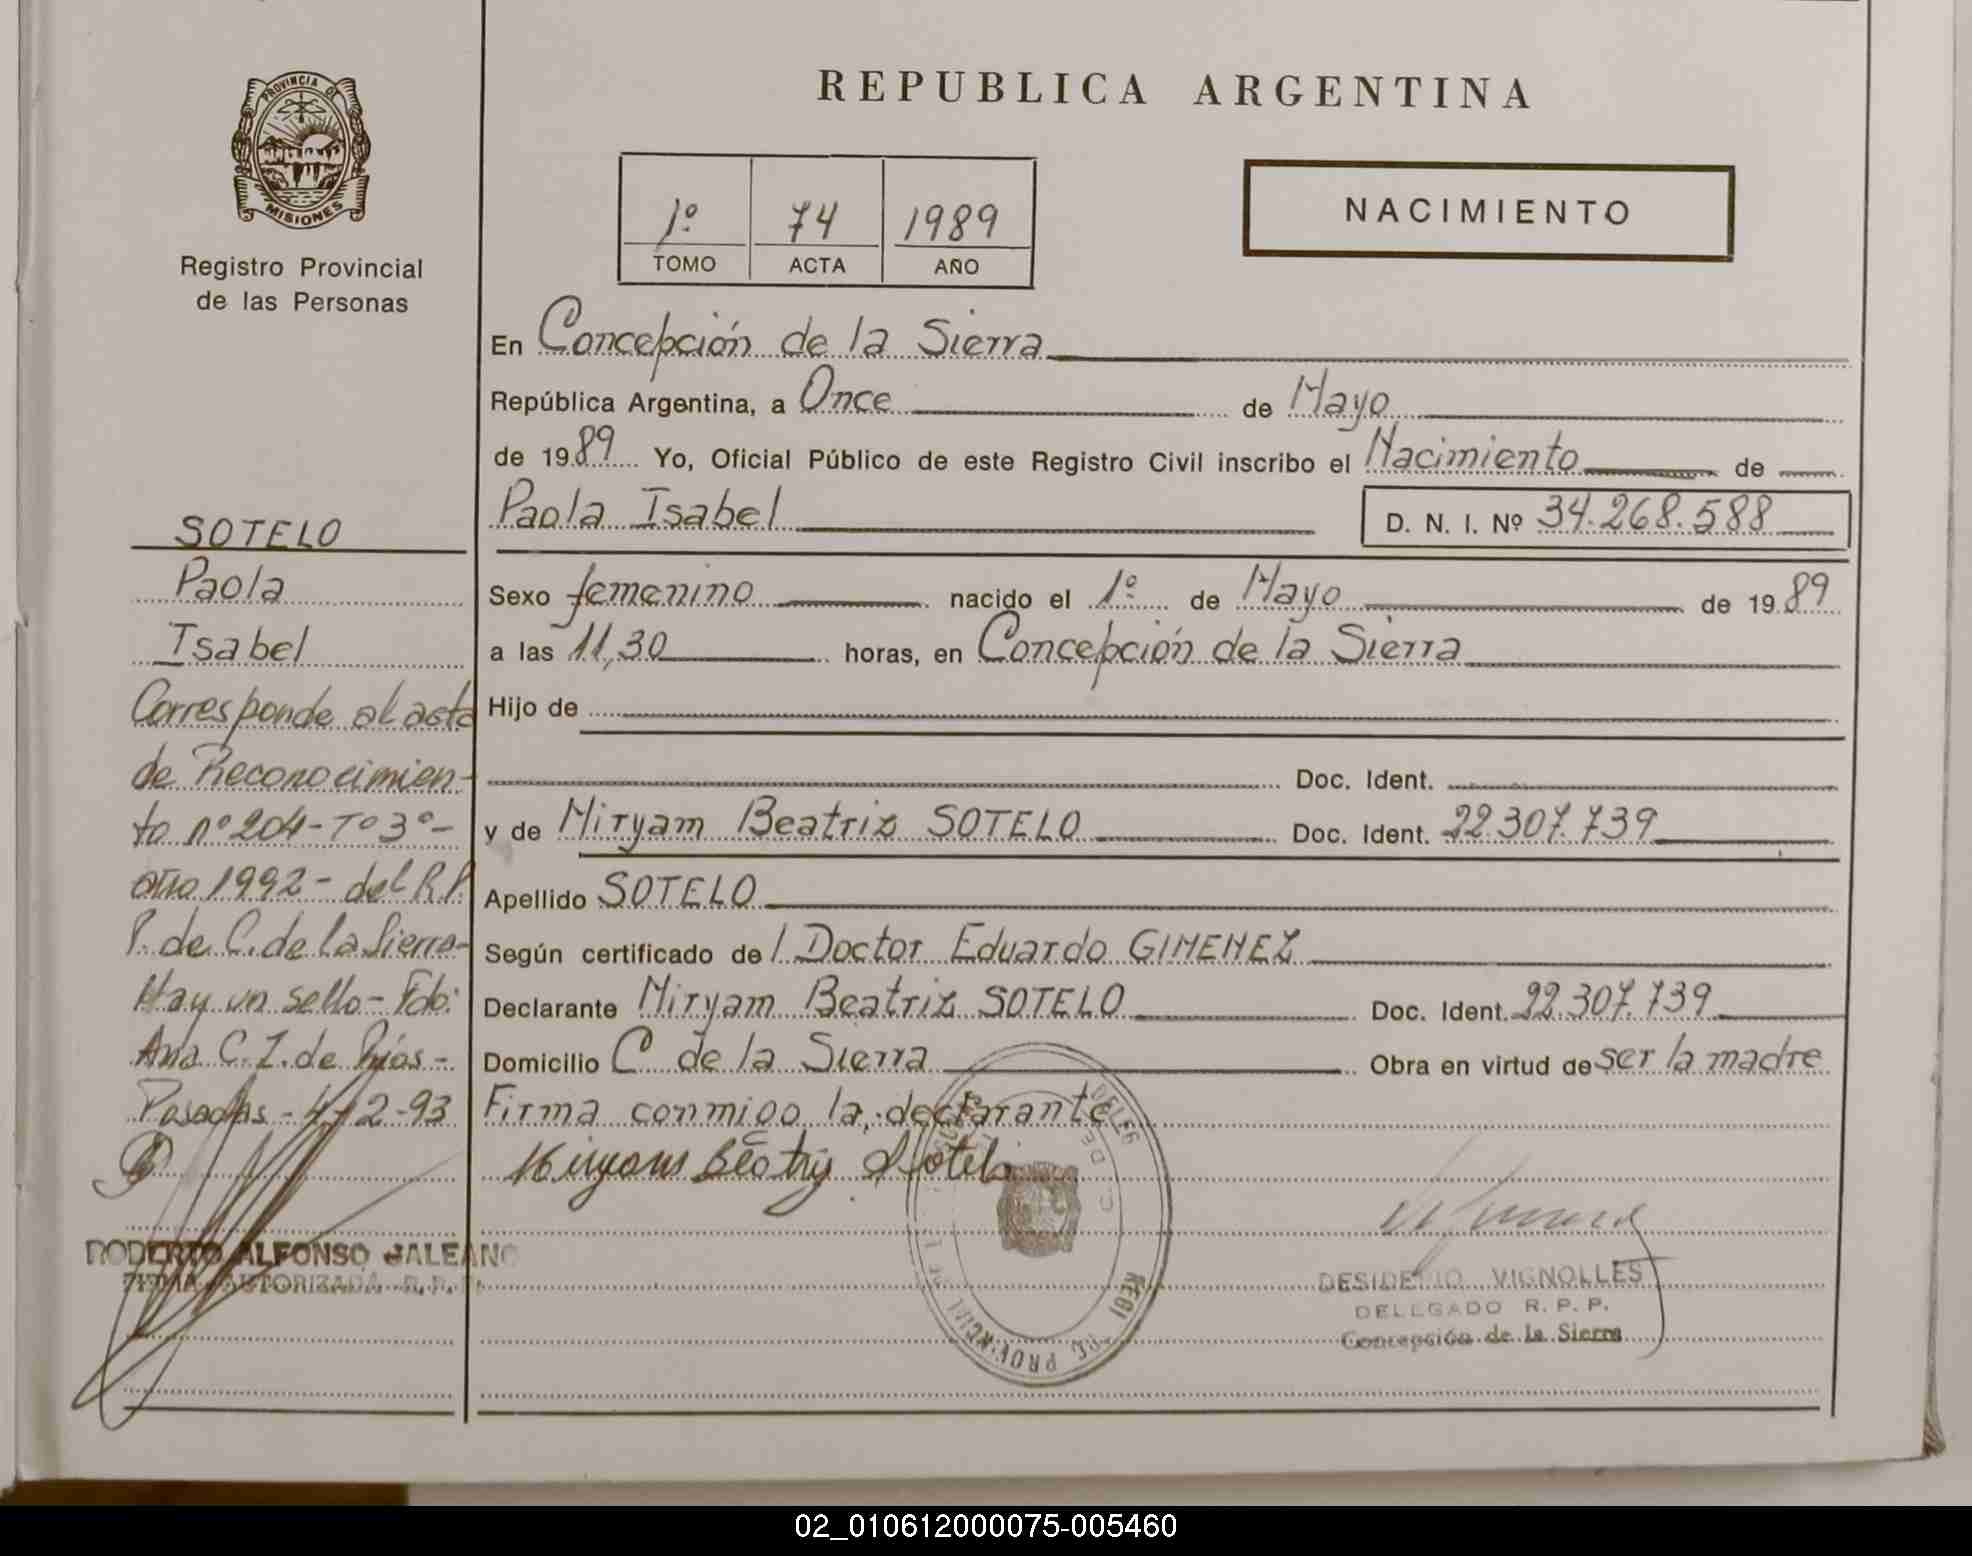 PROVINCIA DE
MISIONES
Registro Provincial
de las Personas
REPUBLICA ARGENTINA
1º 74 1989
TOMO ACTA AÑO
NACIMIENTO
En Concepción de la Sierra
República Argentina, a Once de Mayo
de 1989 Yo, Oficial Público de este Registro Civil inscribo el Nacimiento de
Paola Isabel D. N. I. Nº 34.268.588
Sexo femenino nacido el 1º de Mayo de 1989
a las 11,30 horas, en Concepción de la Sierra
Hijo de
Doc. Ident.
y de Miryam Beatriz SOTELO Doc. Ident. 22.307.739
Apellido SOTELO
Según certificado de l Doctor Eduardo GIMENEZ
Declarante Miryam Beatriz SOTELO Doc. Ident. 22.307.739
Domicilio C de la Sierra Obra en virtud de ser la madre
Firma conmigo la declarante
Miryam Beatriz Sotelo
DESIDERIO VIGNOLLES
DELEGADO R. P. P.
Concepción de la Sierra
SOTELO
Paola
Isabel
Corresponde al acta
de Reconocimien-
to nº 204 - Tº 3º -
año 1992 - del R.P.
P. de C. de la Sierra -
Hay un sello - Fdo:
Ana C. Z. de Ríos -
Posadas - 4-2-93
ROBERTO ALFONSO JALEANO
FIRMA AUTORIZADA R. P. P.
02_010612000075-005460